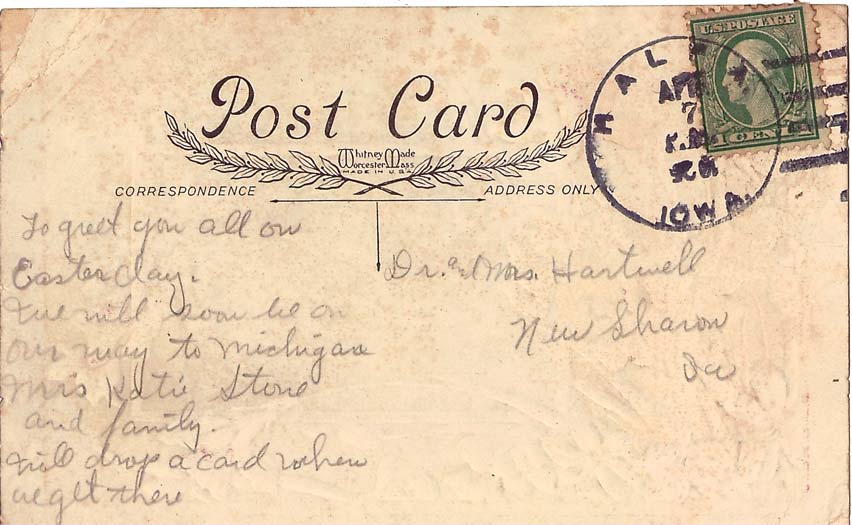 U.S. POSTAGE
APR
7
P.M.
IOWA.
Post Card
Whitney Made
Worcester Mass
MADE IN U.S.A.
CORRESPONDENCE
ADDRESS ONLY
To greet you all on
Easter day.
We will soon be on
our way to Michigan
Mrs Katie Stone
and family.
Will drop a card when
we get there
Dr. and Mrs. Hartwell
New Sharon
Ia